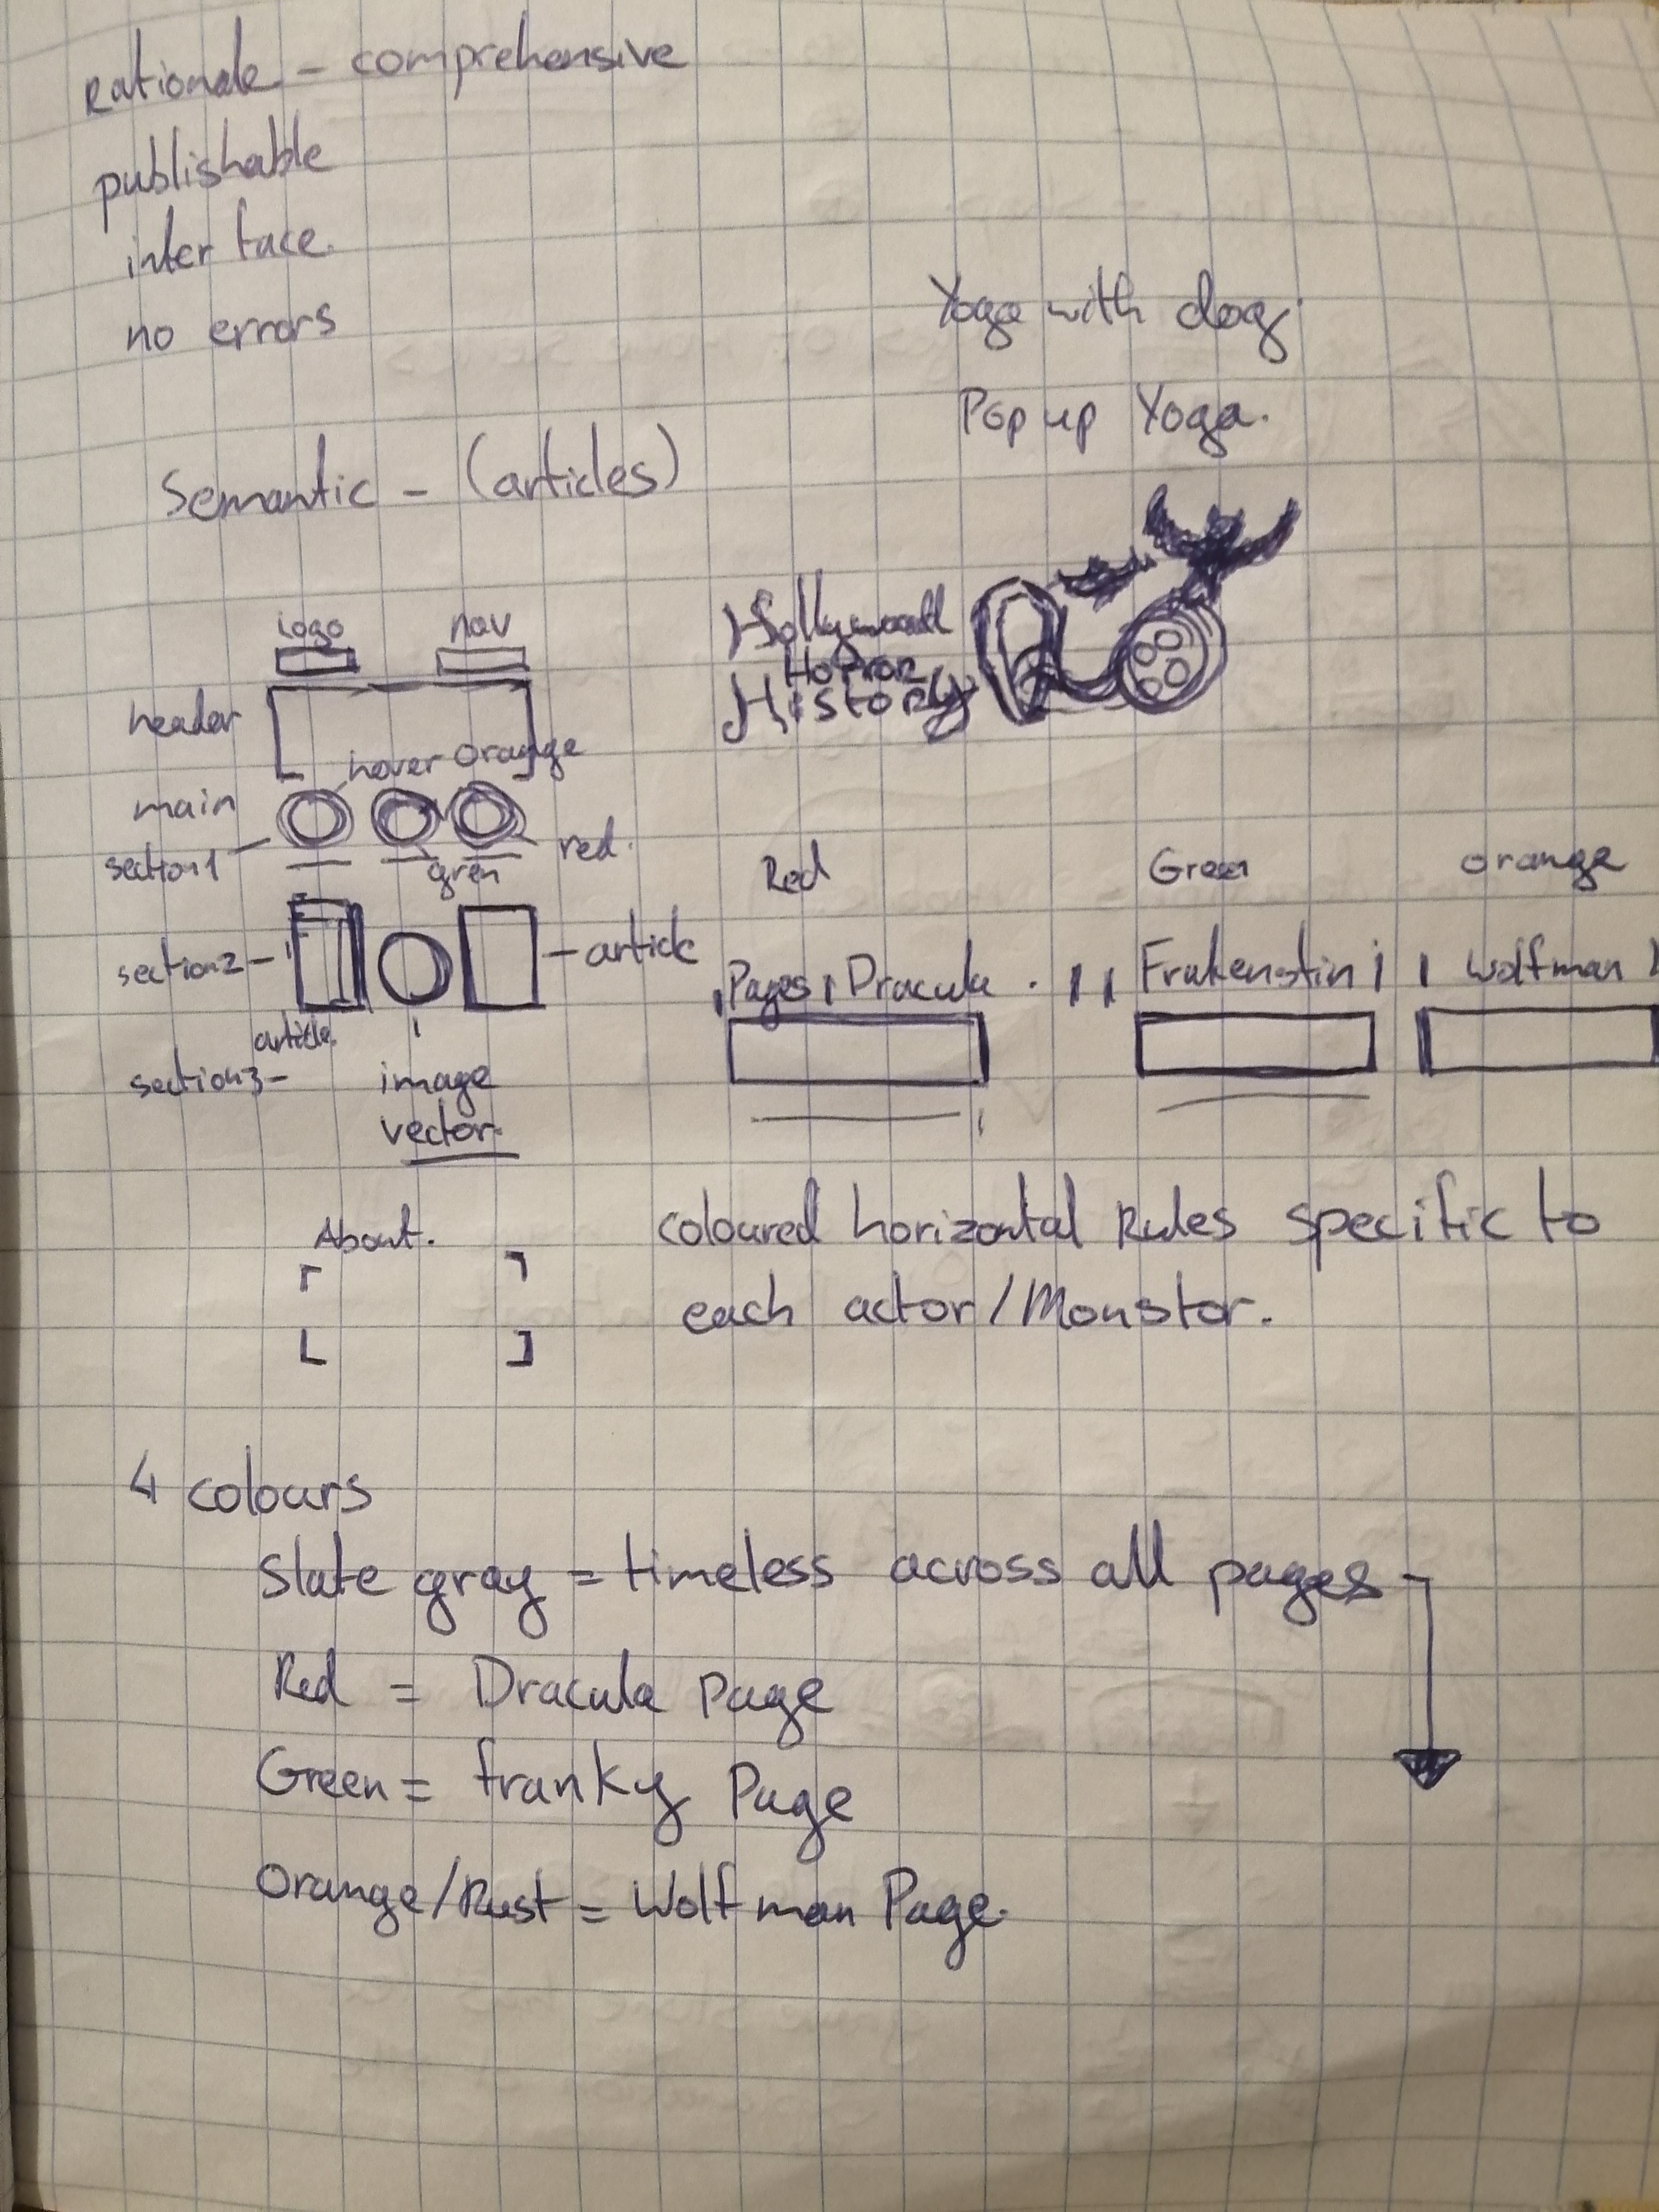 Rationale - comprehensive
publishable
interface.
no errors
Yoga with dog.
Pop up Yoga.
Semantic - (articles)
logo nav
header
hover orange
main
section1
gren
red.
section2-
-article
article
section3-
image
vector.
Hollywood
Horror
History
Red Green orange
Pages Dracula . Frakenstin wolfman
About.
coloured horizontal Rules specific to
each actor/Monstor.
4 colours
Slate gray = timeless across all pages
Red = Dracula page
Green = franky Page
Orange/Rust = Wolfman Page.